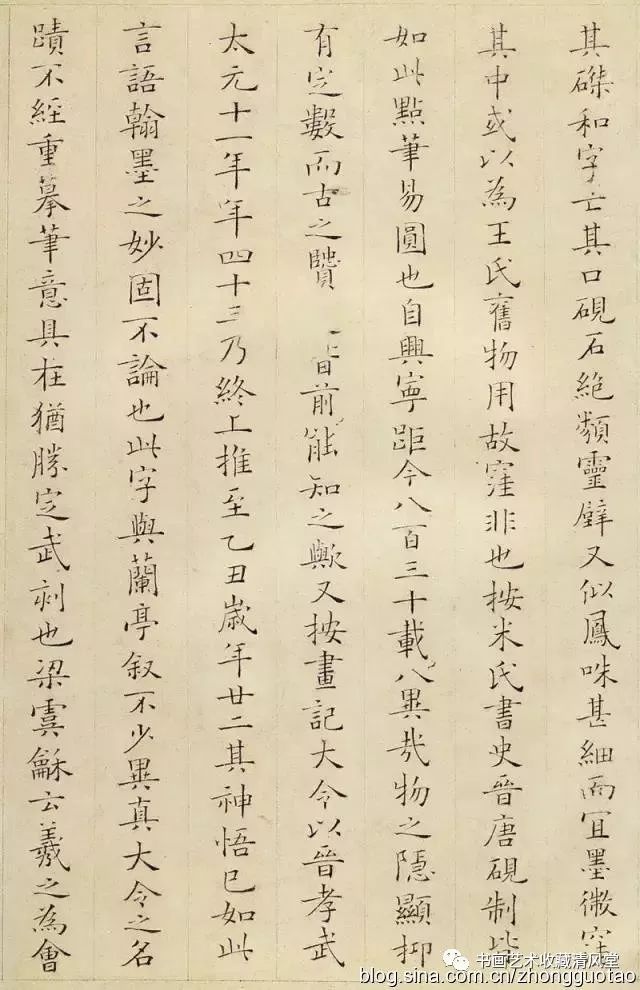 其磔和字亡其口硯石絶類靈璧又似鳳咮甚細而宜墨微窪
其中或以為王氏舊物用故窪非也按米氏書史晉唐硯制皆
如此點筆易圓也自興寧距今八百三十載八異㢤物之隱顯抑
有定數而古之賢 前能知之歟又按畫記大令以晉孝武
太元十一年年四十三乃終上推至乙丑歲年廿二其神悟已如此
言語翰墨之妙固不論也此字與蘭亭叙不少異真大令之名
蹟不經重摹筆意具在猶勝定武刻也梁虞龢云羲之為會
书画艺术收藏清风堂
blog.sina.com.cn/zhongguotao